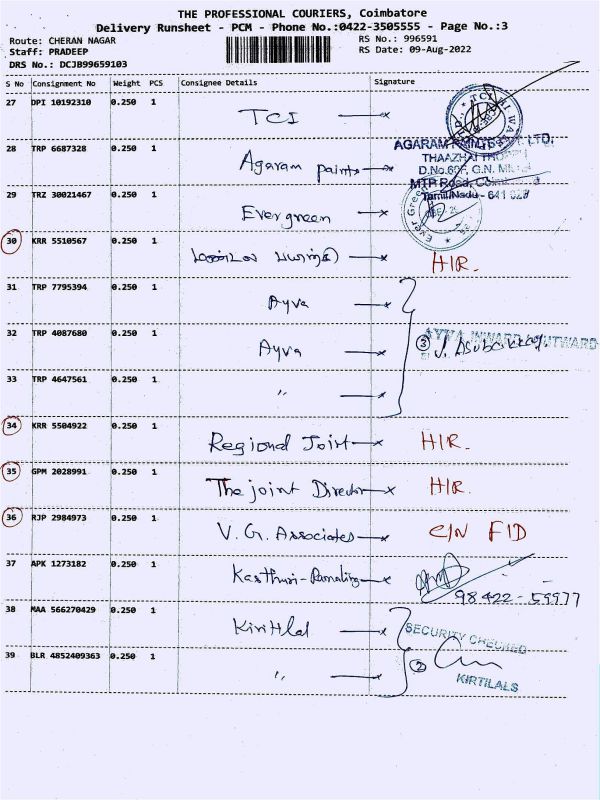 THE PROFESSIONAL COURIERS, Coimbatore
Delivery Runsheet - PCM - Phone No.:0422-3505555 - Page No.:3
Route: CHERAN NAGAR
RS No.: 996591
Staff: PRADEEP
RS Date: 09-Aug-2022
DRS No.: DCJB99659103
S No Consignment No Weight PCS Consignee Details Signature
27 DPI 10192310 0.250 1 TCI
TCI
28 TRP 6687328 0.250 1 Agaram paints
AGARAM
D.No.60F, G.N.
MTP Road,
Tamil Nadu - 641
29 TRZ 30021467 0.250 1 Evergreen
Ever Green
30 KRR 5510567 0.250 1 HIR.
31 TRP 7795394 0.250 1 Ayva
32 TRP 4087680 0.250 1 Ayva
3
INWARD OUTWARD
33 TRP 4647561 0.250 1 "
34 KRR 5504922 0.250 1 Regional Joint HIR.
35 GPM 2028991 0.250 1 The joint Director HIR.
36 RJP 2984973 0.250 1 V. G. Associates C/N FID
37 APK 1273182 0.250 1 Kasthuri-Ramaling
98422-59977
38 MAA 566270429 0.250 1 Kirithlal
SECURITY CHECKED
39 BLR 4852409363 0.250 1 "
2
KIRTILALS